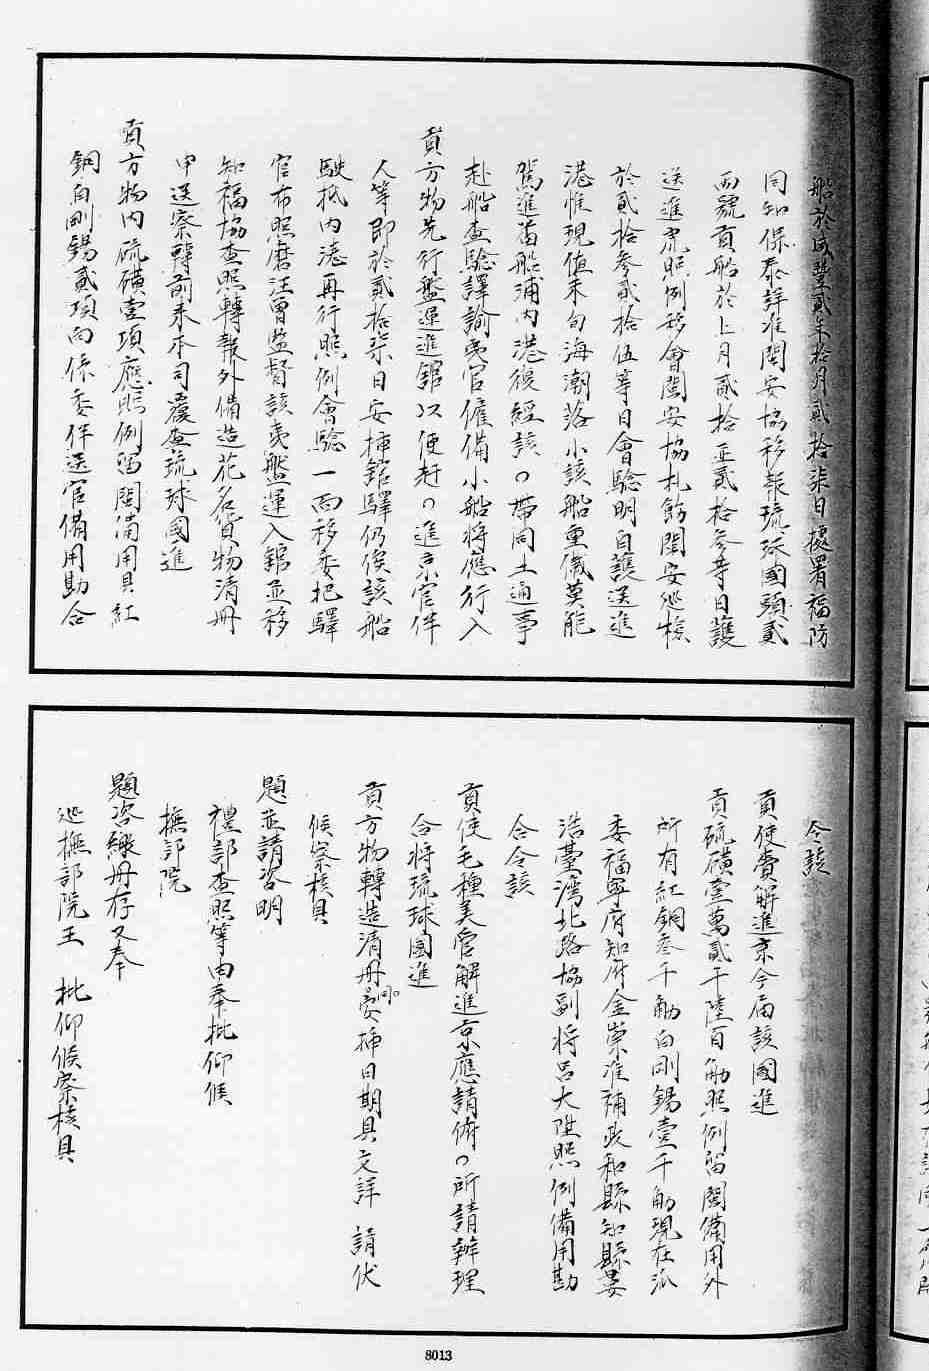 船於咸豐貳年拾月貳拾柒日據署福防
同知保泰詳准閩安協移報琉球國頭貳
兩號貢船於上月貳拾並貳拾參等日護
送進亮照例移會閩安協札飭閩安巡檢
於貳拾參貳拾伍等日會驗明白護送進
港惟現值末旬海潮落小該船重儎莫能
駕進番船浦內港復經該〇帶同土通事
赴船查驗譯諭夷官僱備小船將應行入
貢方物先行盤運進館以便赶〇進京官伴
人等即於貳拾柒日安插館驛仍俟該船
駛抵內港再行照例會驗一面移委把驛
官布照磨汪曾監督該夷盤運入館並移
知福協查照轉報外備造花名貨物清冊
申送察轉前來本司覆查琉球國進
貢方物內硫磺壹項應照例留閩備用其紅
銅白剛錫貳項向係委伴送官備用勘合
令該
貢使賫解進京今届該國進
貢硫磺壹萬貳千陸百觔照例留閩備用外
所有紅銅叁千觔白剛錫壹千觔現在派
委福寧府知府金崇准補政和縣知縣晏
浩臺灣北路協副將呂大陞照例備用勘
合令該
貢使毛種美管解進京應請俯〇所請辦理
合將琉球國進
貢方物轉造清冊同安插日期具文詳 請伏
候察核具
題並請咨明
禮部查照等由奉批仰候
撫部院
題咨繳冊存又奉
巡撫部院王 批仰候察核具
8013